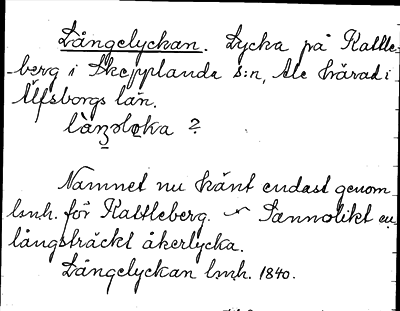 Långelyckan. Lycka på Kattle-
berg i Skepplanda s:n, Ale härad i
Älfsborgs län.
là̀nꝫəlo̜ka ?
Namnet nu känt endast genom
lmh. för Kattleberg. Sannolikt en
långsträckt åkerlycka.
Långelyckan lmh. 1840.